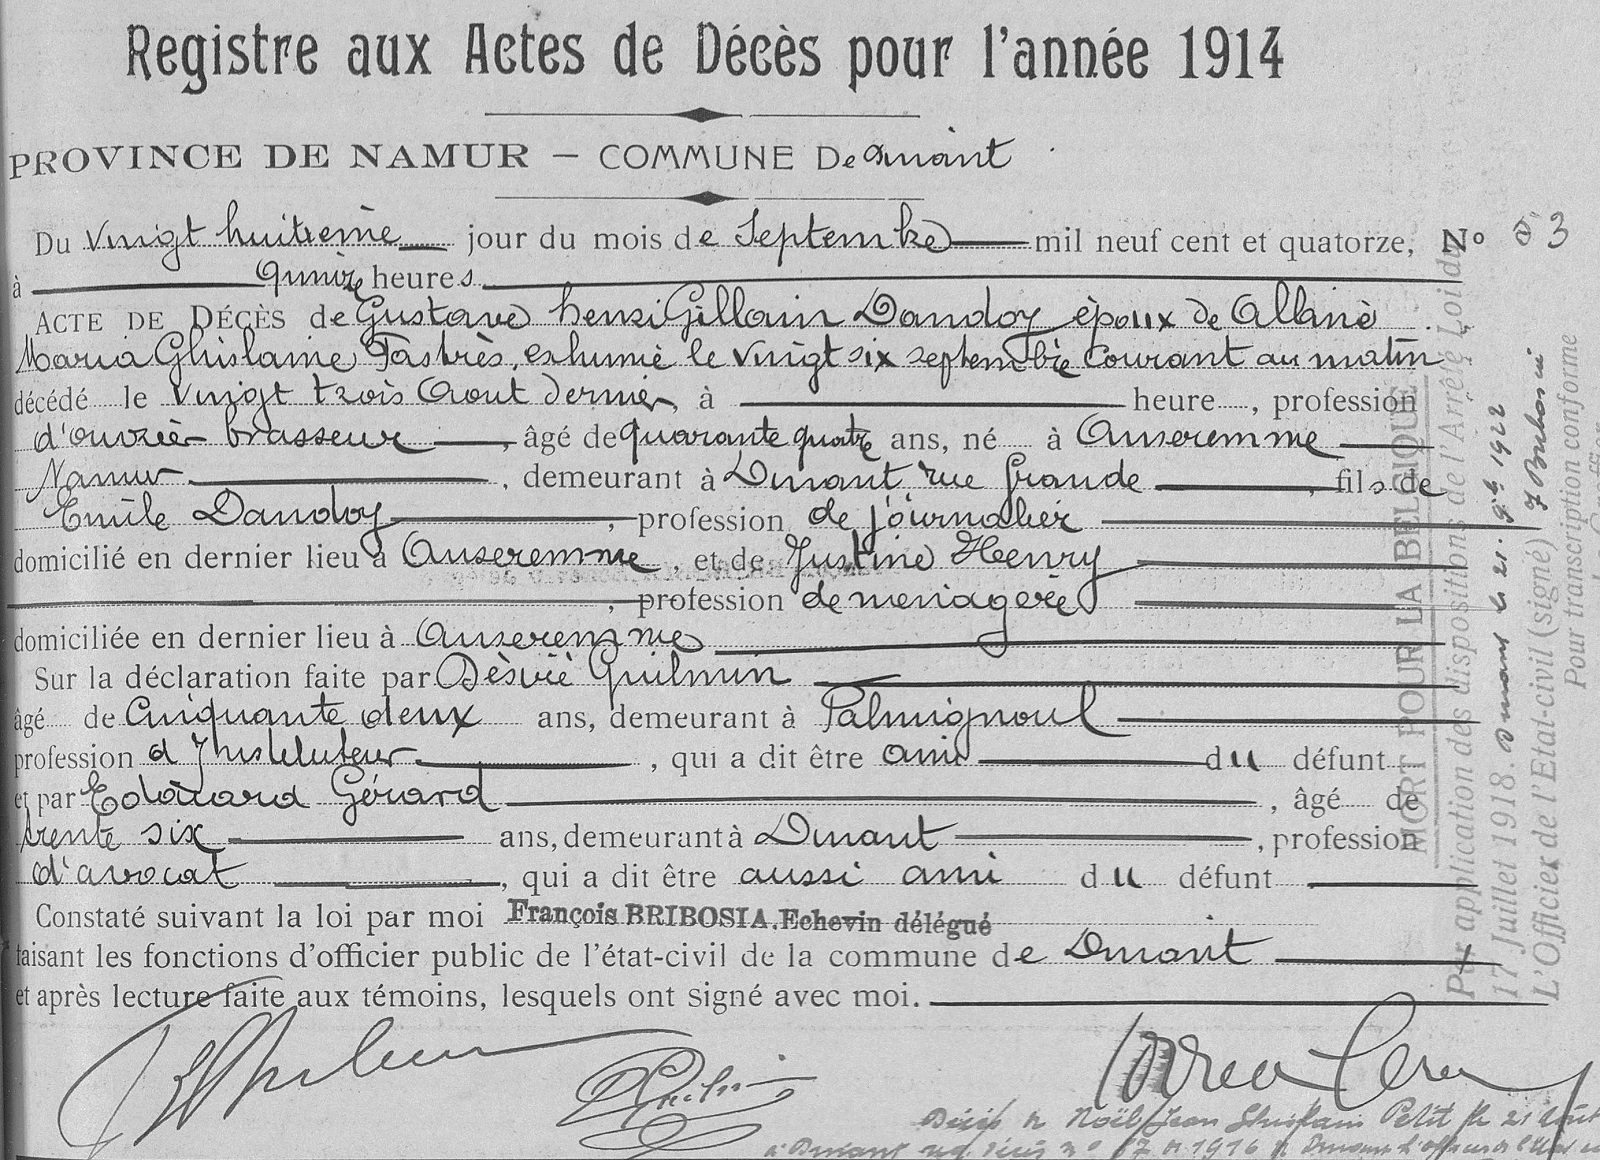 Registre aux Actes de Décès pour l'année 1914
PROVINCE DE NAMUR – COMMUNE De Dinant
Du Vingt huitième jour du mois de Septembre mil neuf cent et quatorze, N° 3
à quinze heures
ACTE DE DÉCÈS de Gustave henri Gillain Dandoy époux de Albine
Maria Ghislaine Tastrès, exhumé le vingt six septembre courant au matin
décédé le Vingt trois Aout dernier, à heure, profession
d'ouvrier brasseur, âgé de quarante quatre ans, né à Anseremme
Namur, demeurant à Dinant rue Grande, fils de
Emile Dandoy, profession de journalier
domicilié en dernier lieu à Anseremme, et de Justine Henry
, profession de menagère
domiciliée en dernier lieu à Anseremme
Sur la déclaration faite par Désiré Guilmin
âgé de Cinquante deux ans, demeurant à Falmignoul
profession d'Instituteur, qui a dit être ami du défunt
et par Edouard Gérard, âgé de
trente six ans, demeurant à Dinant, profession
d'avocat, qui a dit être aussi ami du défunt
Constaté suivant la loi par moi François BRIBOSIA. Echevin délégué
faisant les fonctions d'officier public de l'état-civil de la commune de Dinant
et après lecture faite aux témoins, lesquels ont signé avec moi.
Décès de Noël Jean Ghislain Petit le 21 Août
à Dinant
MORT POUR LA BELGIQUE
Par application des dispositions de l'Arrêté Loi du
17 Juillet 1918. Dinant le 21. 9bre 1922
L'Officier de l'Etat-civil (signé) F Bribosia
Pour transcription conforme